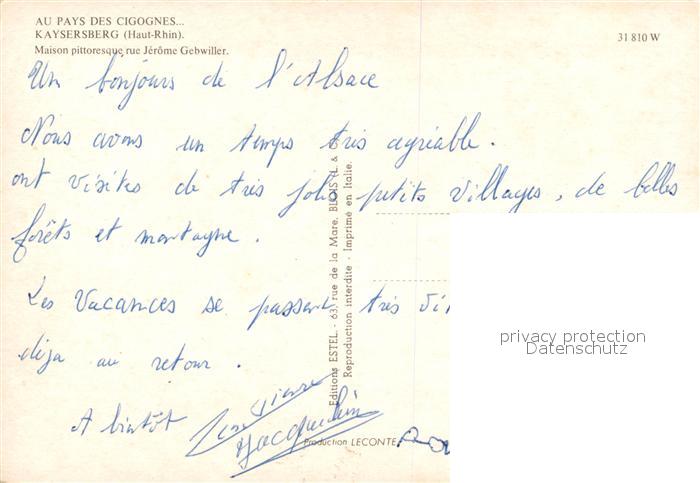 AU PAYS DES CIGOGNES...
KAYSERSBERG (Haut-Rhin).
Maison pittoresque rue Jérôme Gebwiller.
31 810 W
Un bonjours de l'Alsace
Nous avons un temps très agréable.
ont visites de très jolis petits villages, de belles
forêts et montagne.
Les vacances se passent très
déja au retour.
A bientôt
Pierre
Jacqueline
Editions ESTEL - 63, rue de la Mare, BLOIS (L. & C.)
Reproduction interdite - Imprimé en Italie.
Production LECONTE
privacy protection
Datenschutz